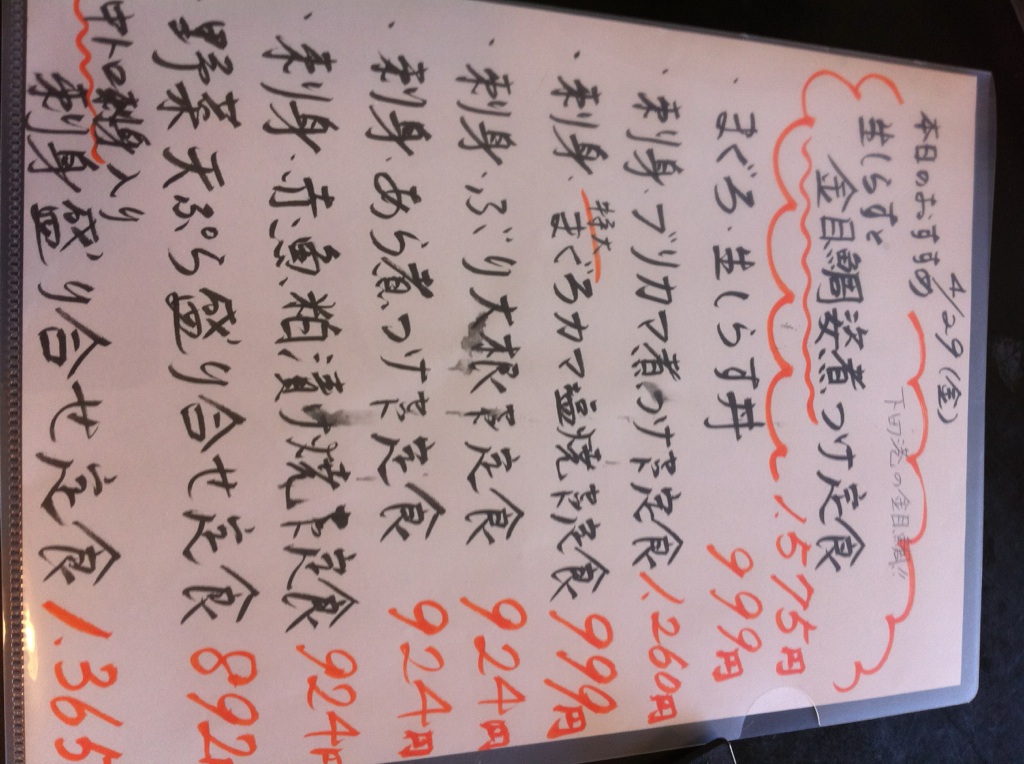 本日のおすすめ 4/29(金)
下田港の金目鯛!!
生しらすと
金目鯛姿煮つけ定食 1.575円
・まぐろ・生しらす丼 999円
・刺身、ブリカマ煮つけ定食 1.260円
・刺身、特大まぐろカマ塩焼き定食 999円
・刺身、ぶり大根定食 924円
・刺身、あら煮つけ定食 924円
・刺身、赤魚粕漬け焼き定食 924円
・野菜天ぷら盛り合せ定食 892
中トロ刺身入り
刺身盛り合せ定食 1.365